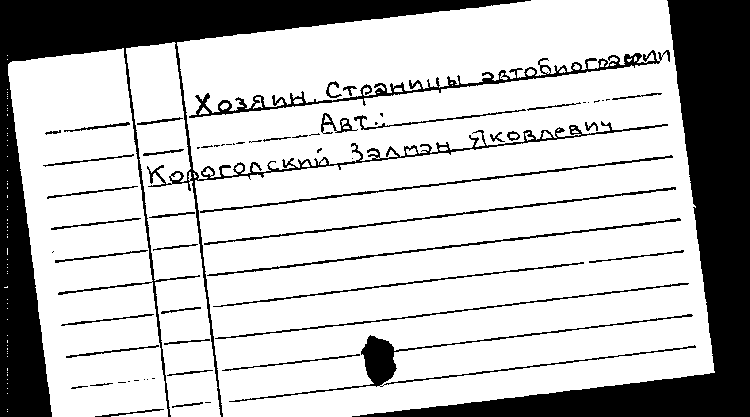 Хозяин. Страницы автобиографии
Авт.:
Корогодский, Залман Яковлевич